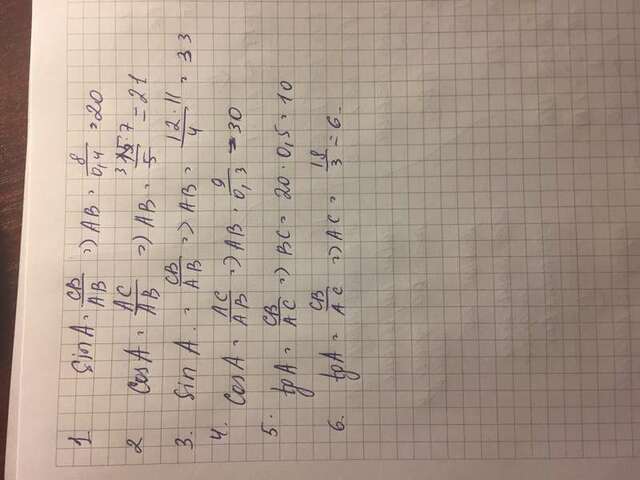 1 Sin A = CB/AB => AB = 8/0,4 = 20
2 Cos A = AC/AB => AB = 3 15·7/5 = 21
3. Sin A = CB/AB => AB = 12·11/4 = 33
4. Cos A = AC/AB => AB = 9/0,3 = 30
5. tg A = CB/AC => BC = 20·0,5 = 10
6. tg A = CB/AC => AC = 18/3 = 6.